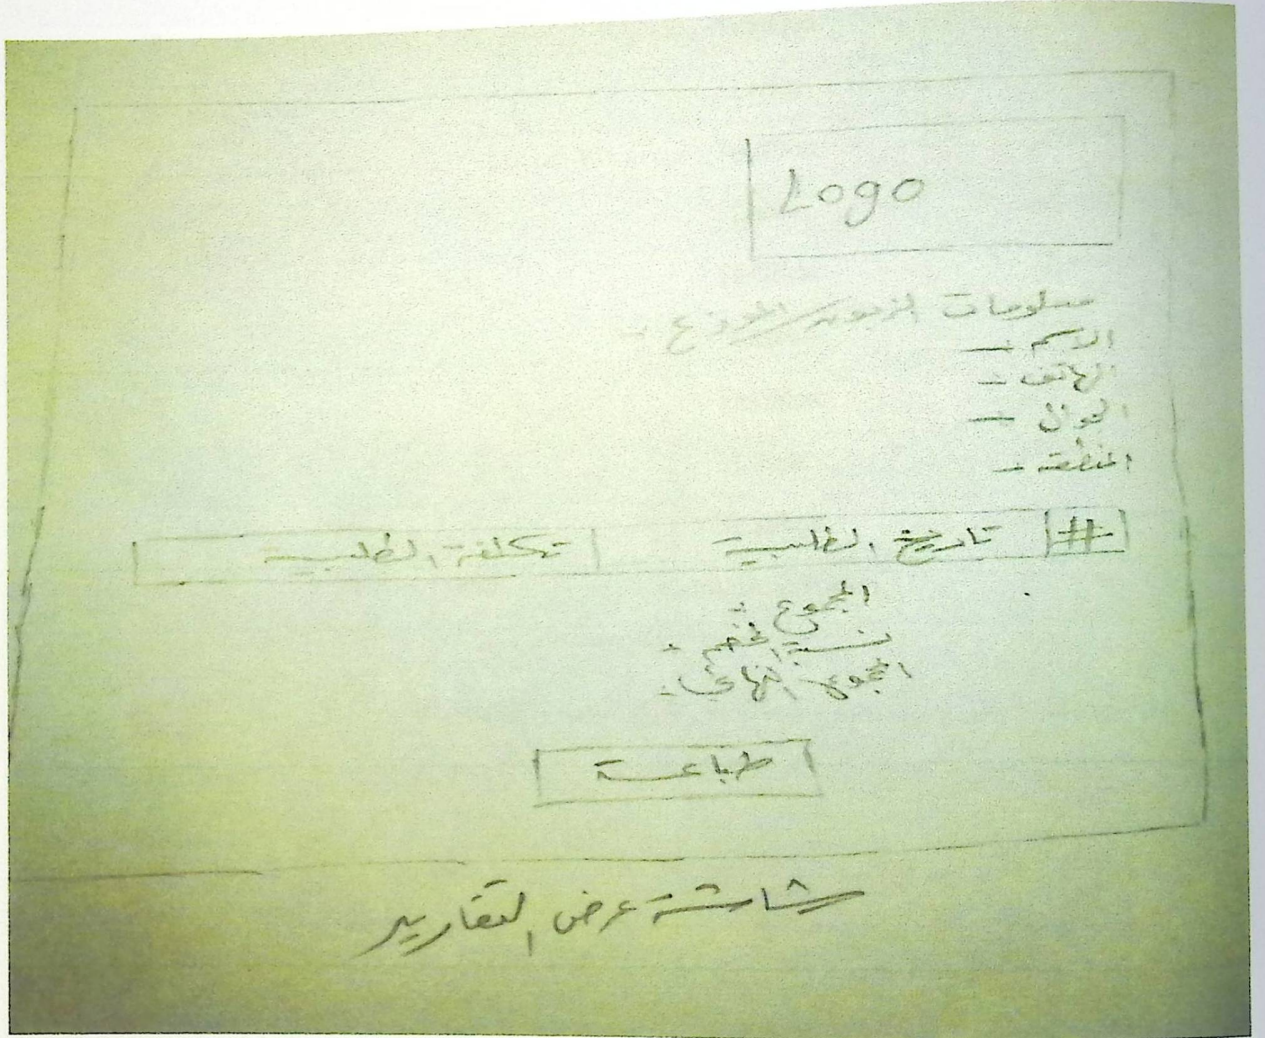 Logo
معلومات الزبون/الموزع :
الاسم :-
الهاتف :-
الجوال :-
المنطقة :-
# تاريخ الطلبية تكلفة الطلبية
المجموع :
نسبة الخصم :
المجموع النهائي :
طباعة
شاشة عرض التقارير